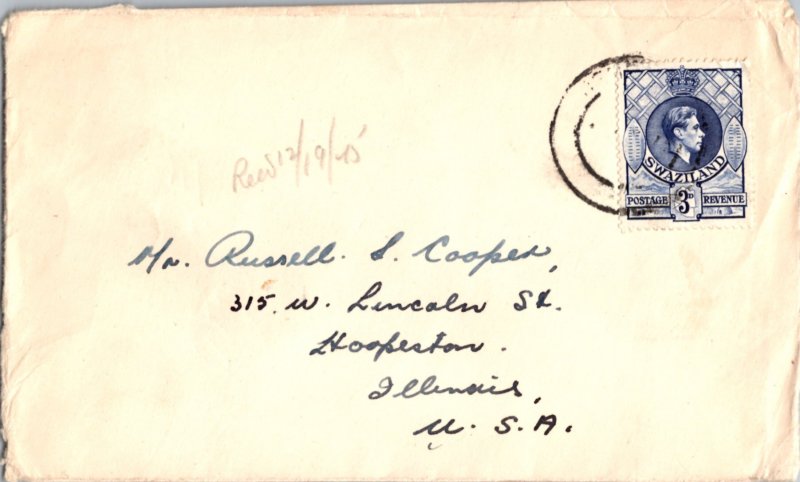 SWAZILAND
POSTAGE 3D REVENUE
Recd 12/19/45
Mr. Russell. S. Cooper,
315. W. Lincoln St.
Hoopeston.
Illinois,
U. S. A.